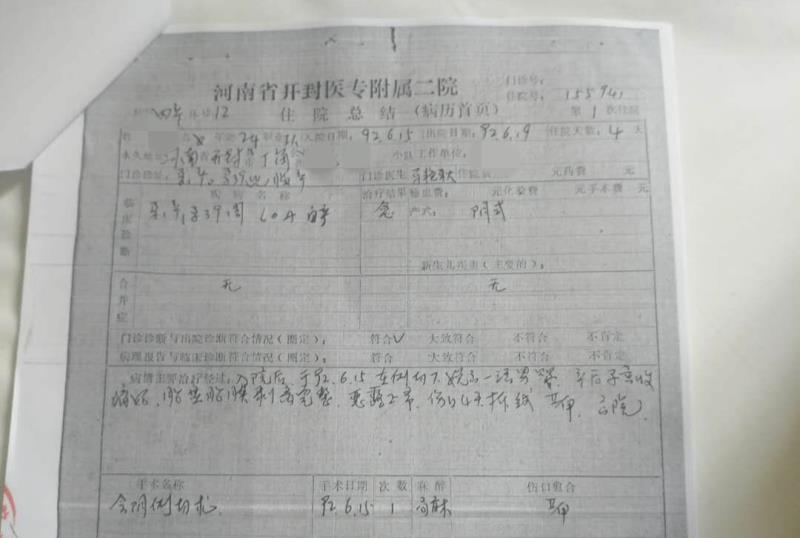 河南省开封医专附属二院
门诊号:
住院号: 155941
住院总结(病历首页) 第1次住院
女 年龄 24 职业 入院日期: 92.6.15 出院日期: 92.6.19 住院天数: 4 天
永久地址: 河南省开封 小队工作单位:
门诊诊断: 门诊医生 住院费: 元药费 元
疾病名称 治疗结果 输血费: 元化验费 元手术费 元
临床诊断 孕39周 LOA 产式: 阴式
新生儿疾患(主要的):
合并症 无 无
门诊诊断与出院诊断符合情况(圈定): 符合√ 大致符合 不符合 不肯定
病理报告与临床诊断符合情况(圈定): 符合 大致符合 不符合 不肯定
病情主要治疗经过: 入院后, 于92.6.15 在侧切下娩出一活男婴, 产后子宫收
缩好, 胎盘胎膜剥离完整, 恶露正常, 伤口4天拆线 出院.
手术名称 手术日期 次数 麻醉 伤口愈合
会阴侧切术 92.6.15 1 局麻